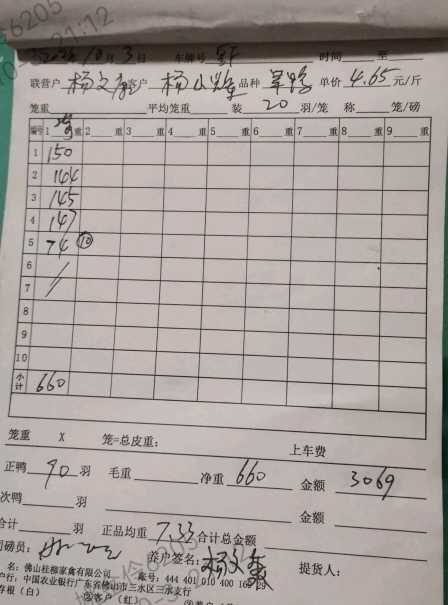 10月3日 车牌号 时间 至
联营户 杨文 客户 杨山 品种 单价 4.65 元/斤
笼重 平均笼重 装 20 羽/笼 称 笼/磅
编号 1 重 2 重 3 重 4 重 5 重 6 重 7 重 8 重 9 重
1 150
2 144
3 145
4 147
5 74 ⑩
6
7
8
9
10
小计 660
笼重 X 笼=总皮重: 上车费
正鸭 90 羽 毛重 净重 660 金额 3069
次鸭 羽 金额
合计 羽 正品均重 7.33 合计总金额
司磅员: 养户签名: 杨文 提货人:
名: 佛山桂柳家禽有限公司 账号: 444 401 010 400 16
户行: 中国农业银行广东省佛山市三水区三水支行
存根(白) ②客户(红)